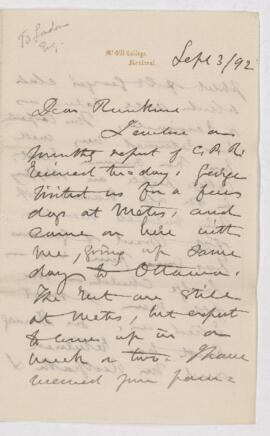 McGill College,
Montreal.
Sept 3/92
Dear Rankine
I enclose a
monthly report of C.P.R.
received to-day. George
visited us for a few
days at Metis, and
came on here with
me, going up same
day to Ottawa.
The rest are still
at Metis, but expect
to come up in a
week or two. I have
received your